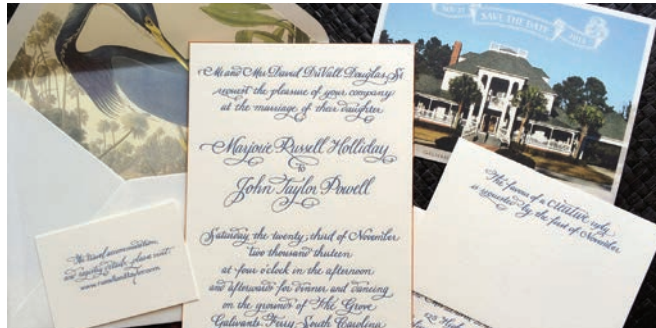 Mr and Mrs David DuVall Douglas, Sr
request the pleasure of your company
at the marriage of their daughter
Marjorie Russell Holliday
to
John Taylor Powell
Saturday the twenty third of November
two thousand thirteen
at four o'clock in the afternoon
and afterwards for dinner and dancing
on the grounds of The Grove
Galivants Ferry, South Carolina
NOV 23 SAVE THE DATE 2013
The favour of a creative reply
is requested by the first of November
For travel accommodations
and registry details, please visit:
www.russellandtaylor.com